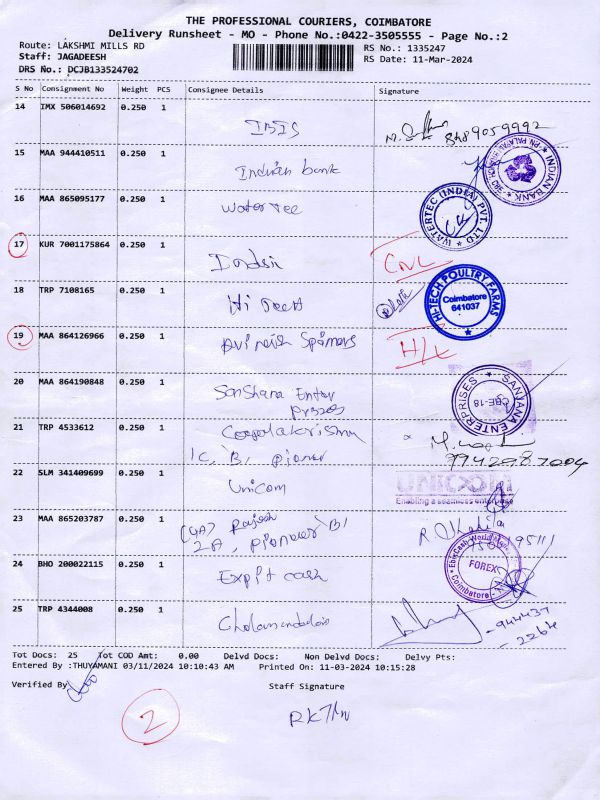 THE PROFESSIONAL COURIERS, COIMBATORE
Delivery Runsheet - MO - Phone No.:0422-3505555 - Page No.:2
Route: LAKSHMI MILLS RD
RS No.: 1335247
Staff: JAGADEESH
RS Date: 11-Mar-2024
DRS No.: DCJB133524702
S No Consignment No Weight PCS Consignee Details Signature
14 IMX 506014692 0.250 1
IBIS
8489059992
15 MAA 944410511 0.250 1
Indian bank
INDIAN BANK
16 MAA 865095177 0.250 1
Water Tec
WATERTEC (INDIA) PVT. LTD
17 KUR 7001175864 0.250 1
CNL
18 TRP 7108165 0.250 1
Hi Tech
HI-TECH POULTRY FARMS
Coimbatore
641037
19 MAA 864126966 0.250 1
Spinners
20 MAA 864190848 0.250 1
Enter
SANJANA ENTERPRISES
CBE-18
21 TRP 4533612 0.250 1
Gopalakrishna
22 SLM 341409699 0.250 1
Unicom
UNICOM
Enabling a seamless enterprise
23 MAA 865203787 0.250 1
Rajesh
2A, Pioneer
24 BHO 200022115 0.250 1
Cash
FOREX
Coimbatore
25 TRP 4344008 0.250 1
944437
2264
Tot Docs: 25 Tot COD Amt: 0.00 Delvd Docs: Non Delvd Docs: Delvy Pts:
Entered By :THUYAMANI 03/11/2024 10:10:43 AM Printed On: 11-03-2024 10:15:28
Verified By
Staff Signature
2